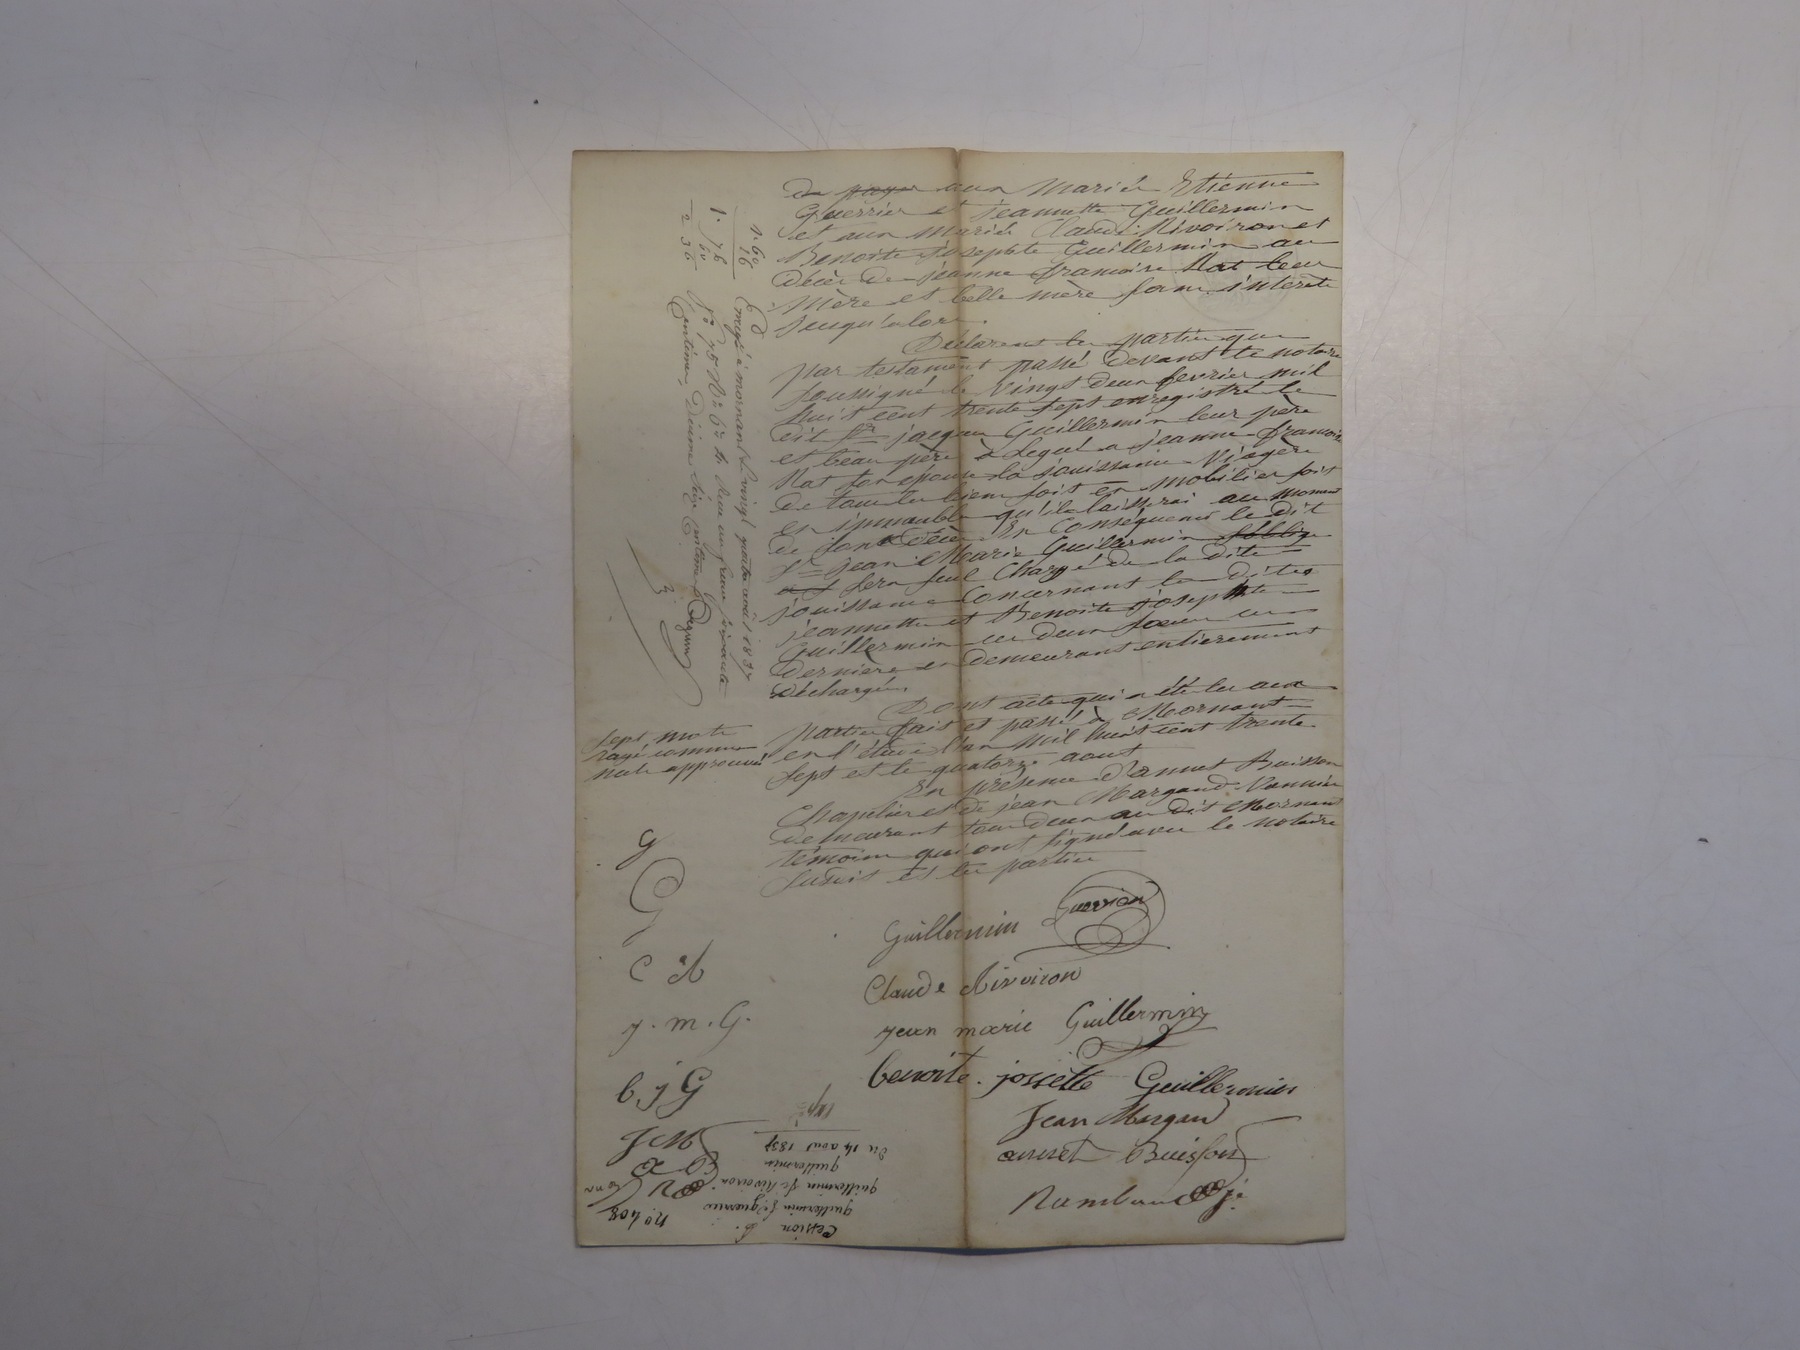 de payer aux mariés Etienne
Guerrier et jeannette Guillermin
et aux mariés Claude Rivoiron et
Benoite Josephte Guillermin au
décès de jeanne françoise Rat leur
mère et belle mère sans intérêts
jusqu'alors.
Déclarent les parties que
par testament passé devant le notaire
soussigné le vingt deux fevrier mil
huit cent trente sept enregistré le
dit Sr. jacques Guillermin leur père
et beau père a legué a jeanne françoise
Rat son épouse la jouissance viagère
de tous les biens soit en mobilier soit
en immeubles qu'il laisserai au moment
de son décès En Conséquence le dit
Sr jean Marie Guillermin s'oblige
sera seul Chargé de la dite
jouissance Concernant les dites
jeannette et Benoite Josephte
Guillermin ses deux soeurs ces
dernières en demeurant entierement
déchargées.
Dont acte qui a été lu aux
parties fait et passé à Mornant
en l'étude l'an mil huit cent trente
sept et le quatorze aout
En présence d'annet Buisson
Chapelier et de jean Margaud Vannier
demeurant tous deux au dit Mornant
témoins qui ont signé avec le notaire
susdit et les parties
sept mots
rayé comme
nuls approuvé
Guillermin Guerrier
Claude Rivoiron
jean marie Guillermin
benoite josette Guillermin
Jean Margau
annet Buisson
g
G
C R
j. m. G.
b j G
J M
a B
R
1. 60
16
1. 76
60
2 36
Enregé à mornant le vingt quatre août 1837
fo 78 Ro Co 4. Reçu un franc soixante
Centimes, Décime seize centimes
No 408
Cession
guillermin & guerrier
guillermin & Rivoiron
guillermin
Du 14 aout 1837